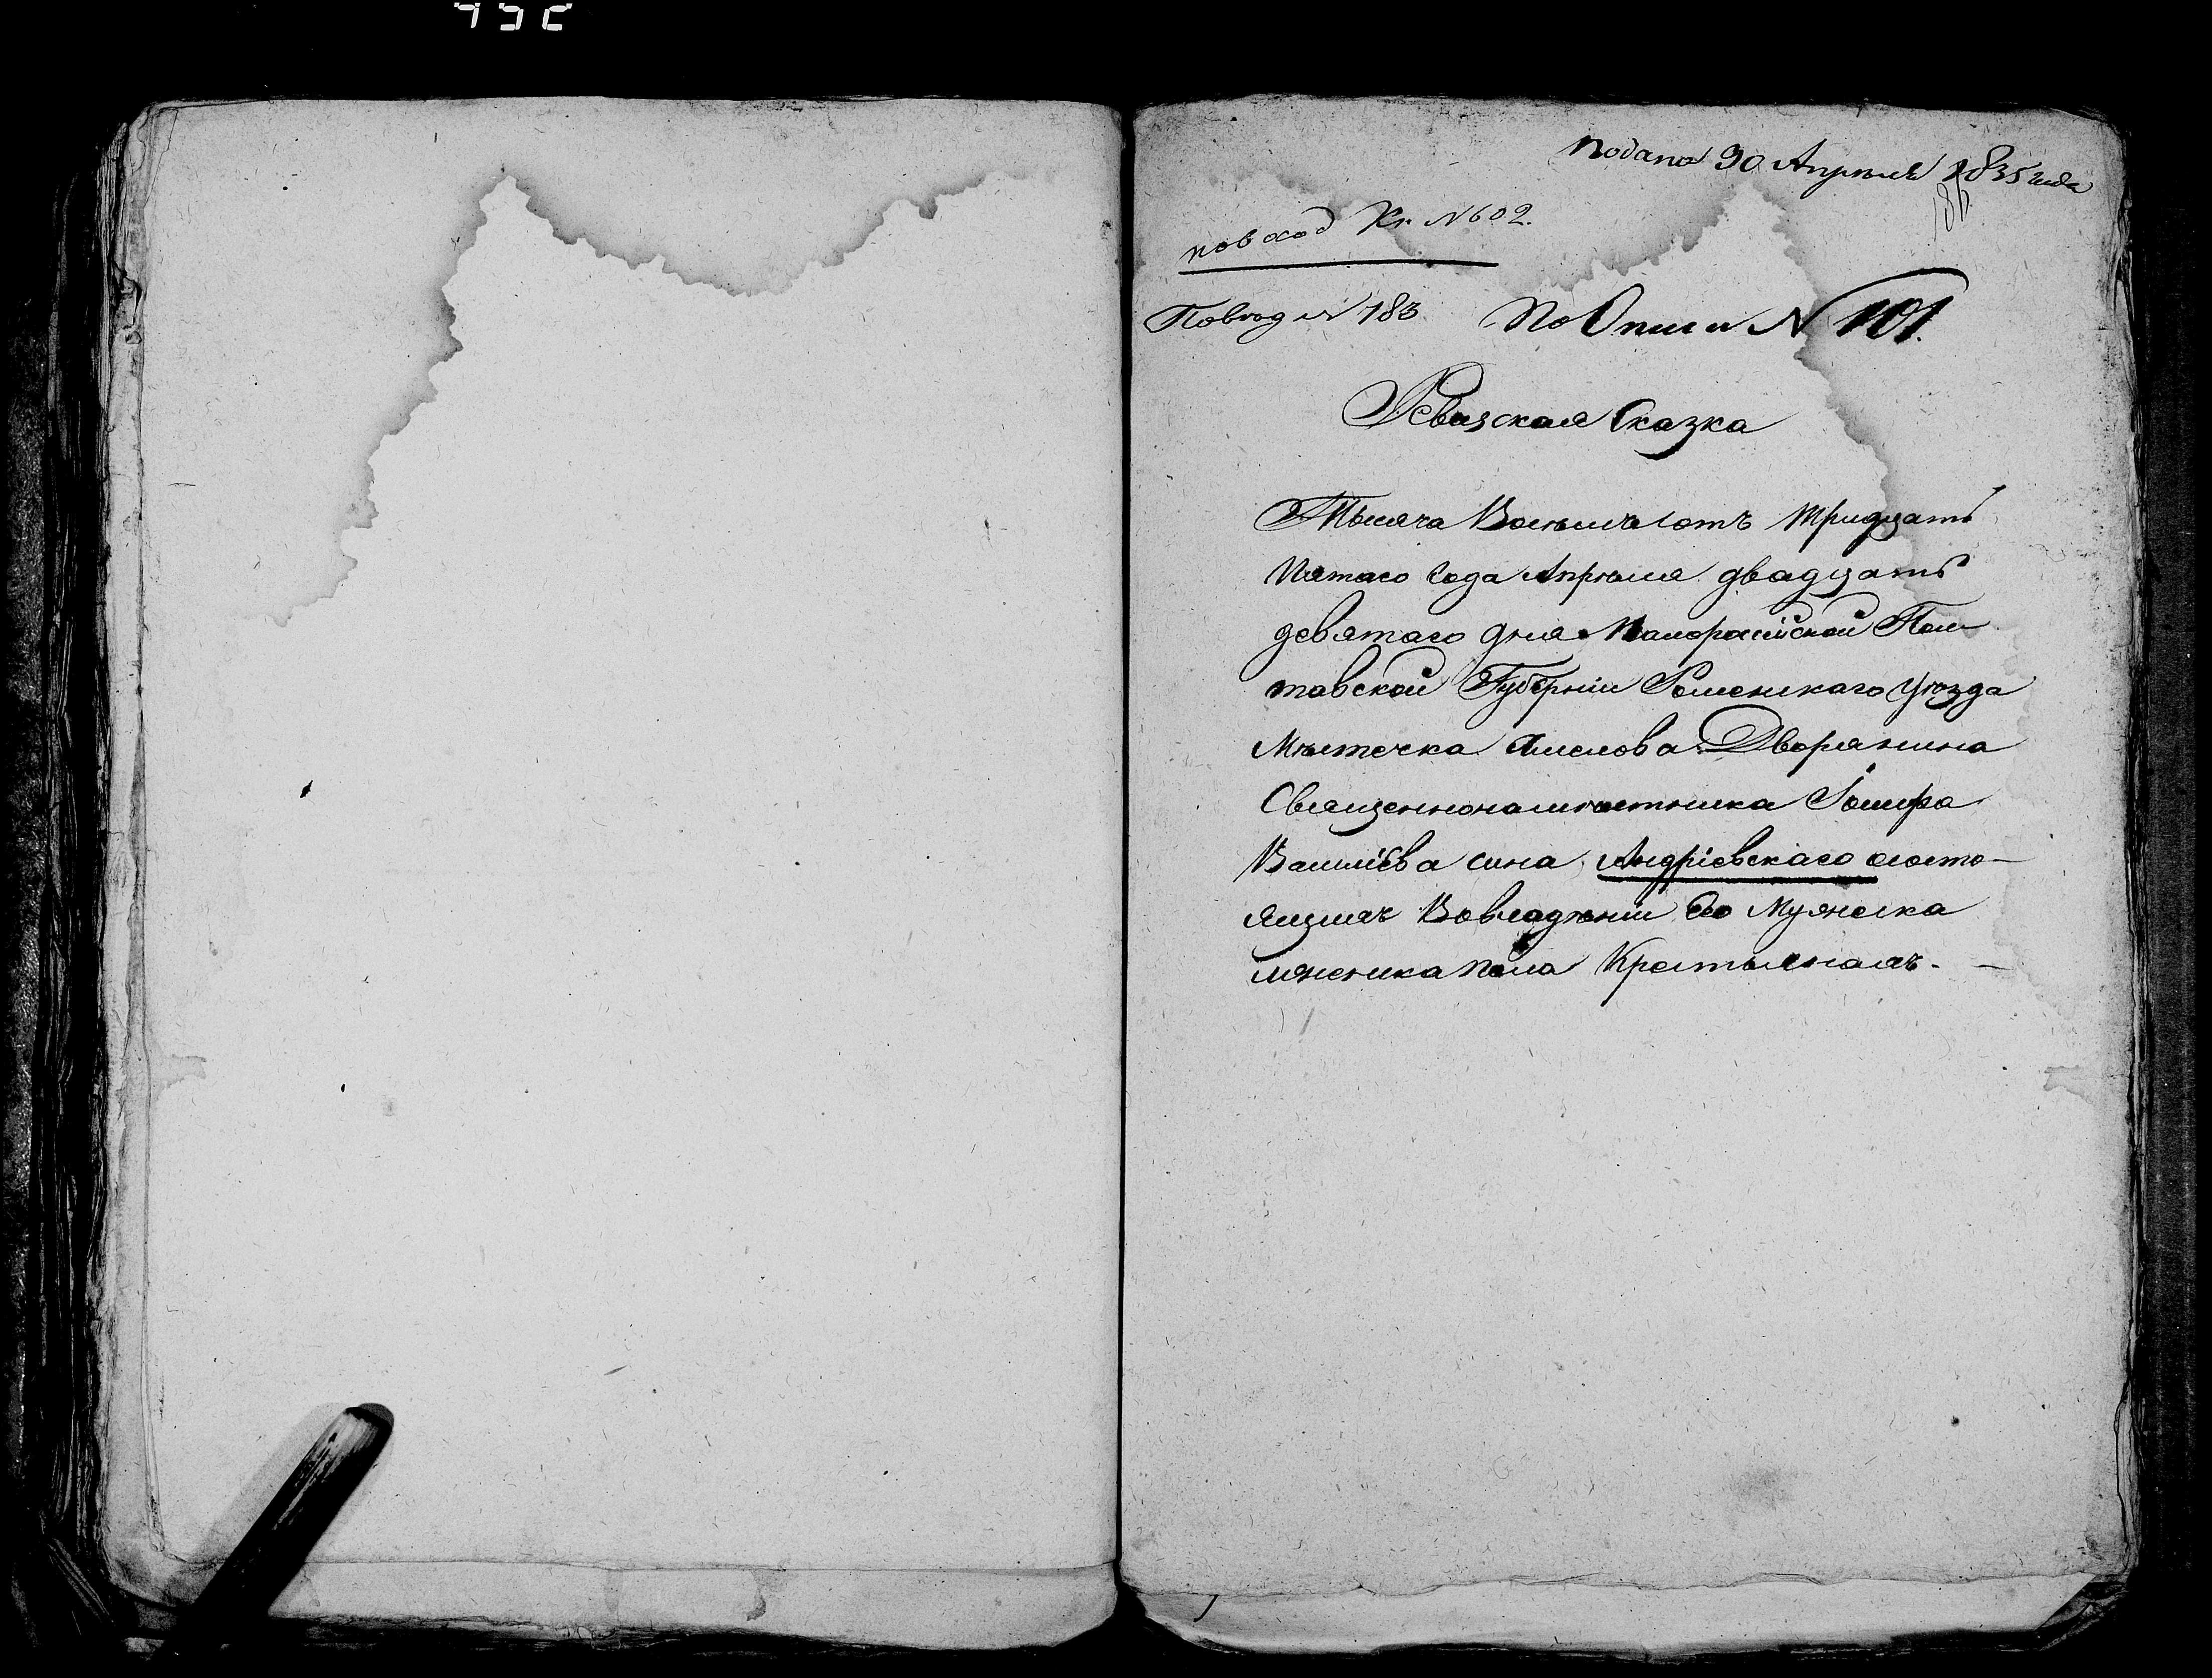 Подана 30 Апреля 1835 года
186
повход Кн. N 602.
По вход N 183
По Описи N 101.
Ревизская Сказка
Тысяча Восемъ сотъ тридцать
Пятаго года Апреля двадцать
девятаго дня Малоросійской Пол-
тавской Губерніи Роменскаго уезда
Местечка Смелова Дворянина
Священнонаместника Іосифа
Василіева сина Андріевскаго ососто-
ящихъ Вовладеніи Его Мужеска
иженска пола Крестьянахъ. —